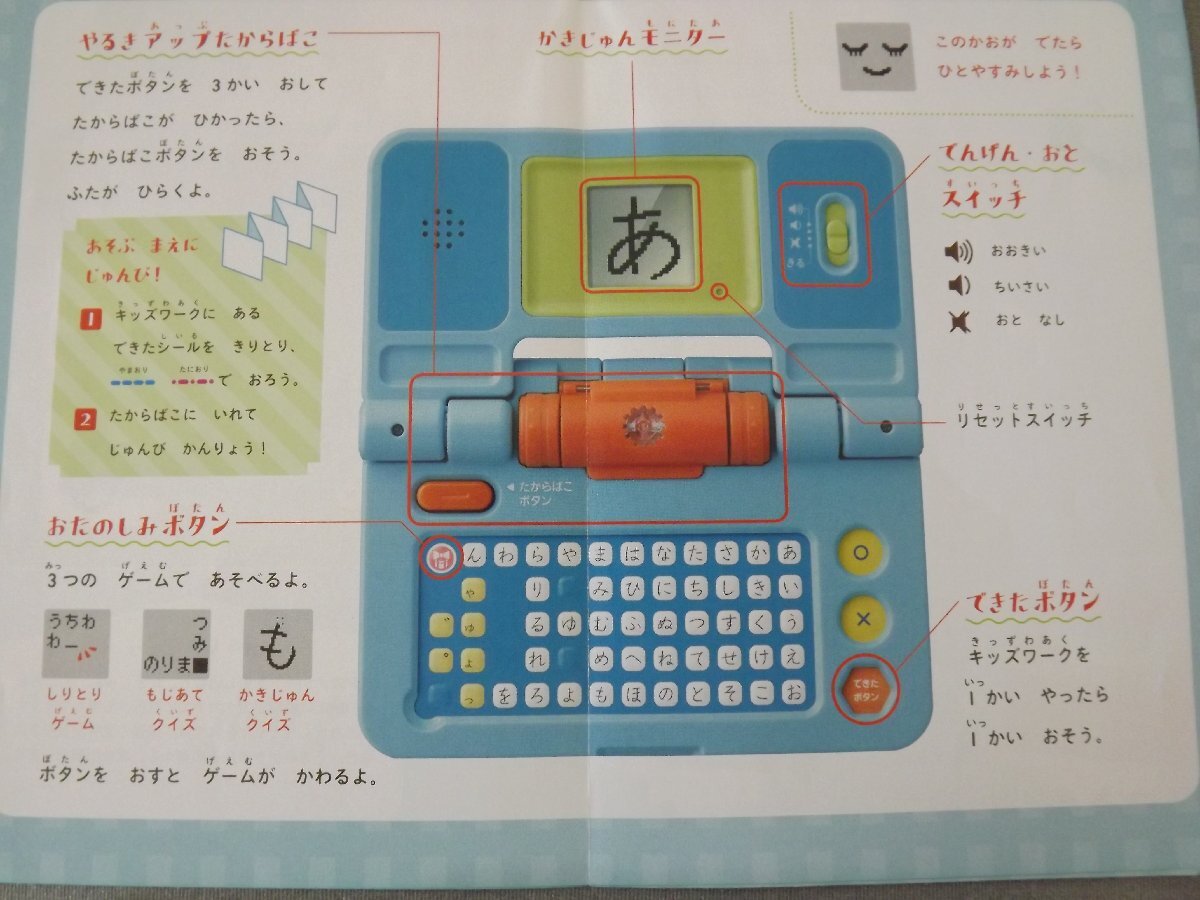 やるきアップたからばこ
あっぷ
できたボタンを 3かい おして
ぼたん
たからばこが ひかったら、
たからばこボタンを おそう。
ぼたん
ふたが ひらくよ。
あそぶ まえに
じゅんび!
1 キッズワークに ある
きっずわあく
できたシールを きりとり、
しいる
やまおり たにおり
で おろう。
2 たからばこに いれて
じゅんび かんりょう!
おたのしみボタン
ぼたん
3つの ゲームで あそべるよ。
みっ げえむ
うちわ
わー
しりとり
ゲーム
げえむ
つ
み
のりま■
もじあて
クイズ
くいず
も
かきじゅん
クイズ
くいず
ボタンを おすと ゲームが かわるよ。
ぼたん げえむ
かきじゅんモニター
もにたあ
あ
きる
◀たからばこ
ボタン
んわらやまはなたさかあ
ゃ り みひにちしきい
゛ゅ るゆむふぬつすくう
゜ょ れ めへねてせけえ
っをろよもほのとそこお
○
×
できた
ボタン
このかおが でてたら
ひとやすみしよう!
でんげん・おと
スイッチ
すいっち
おおきい
ちいさい
おと なし
リセットスイッチ
りせっとすいっち
できたボタン
ぼたん
キッズワークを
きっずわあく
1かい やったら
いっ
1かい おそう。
いっ